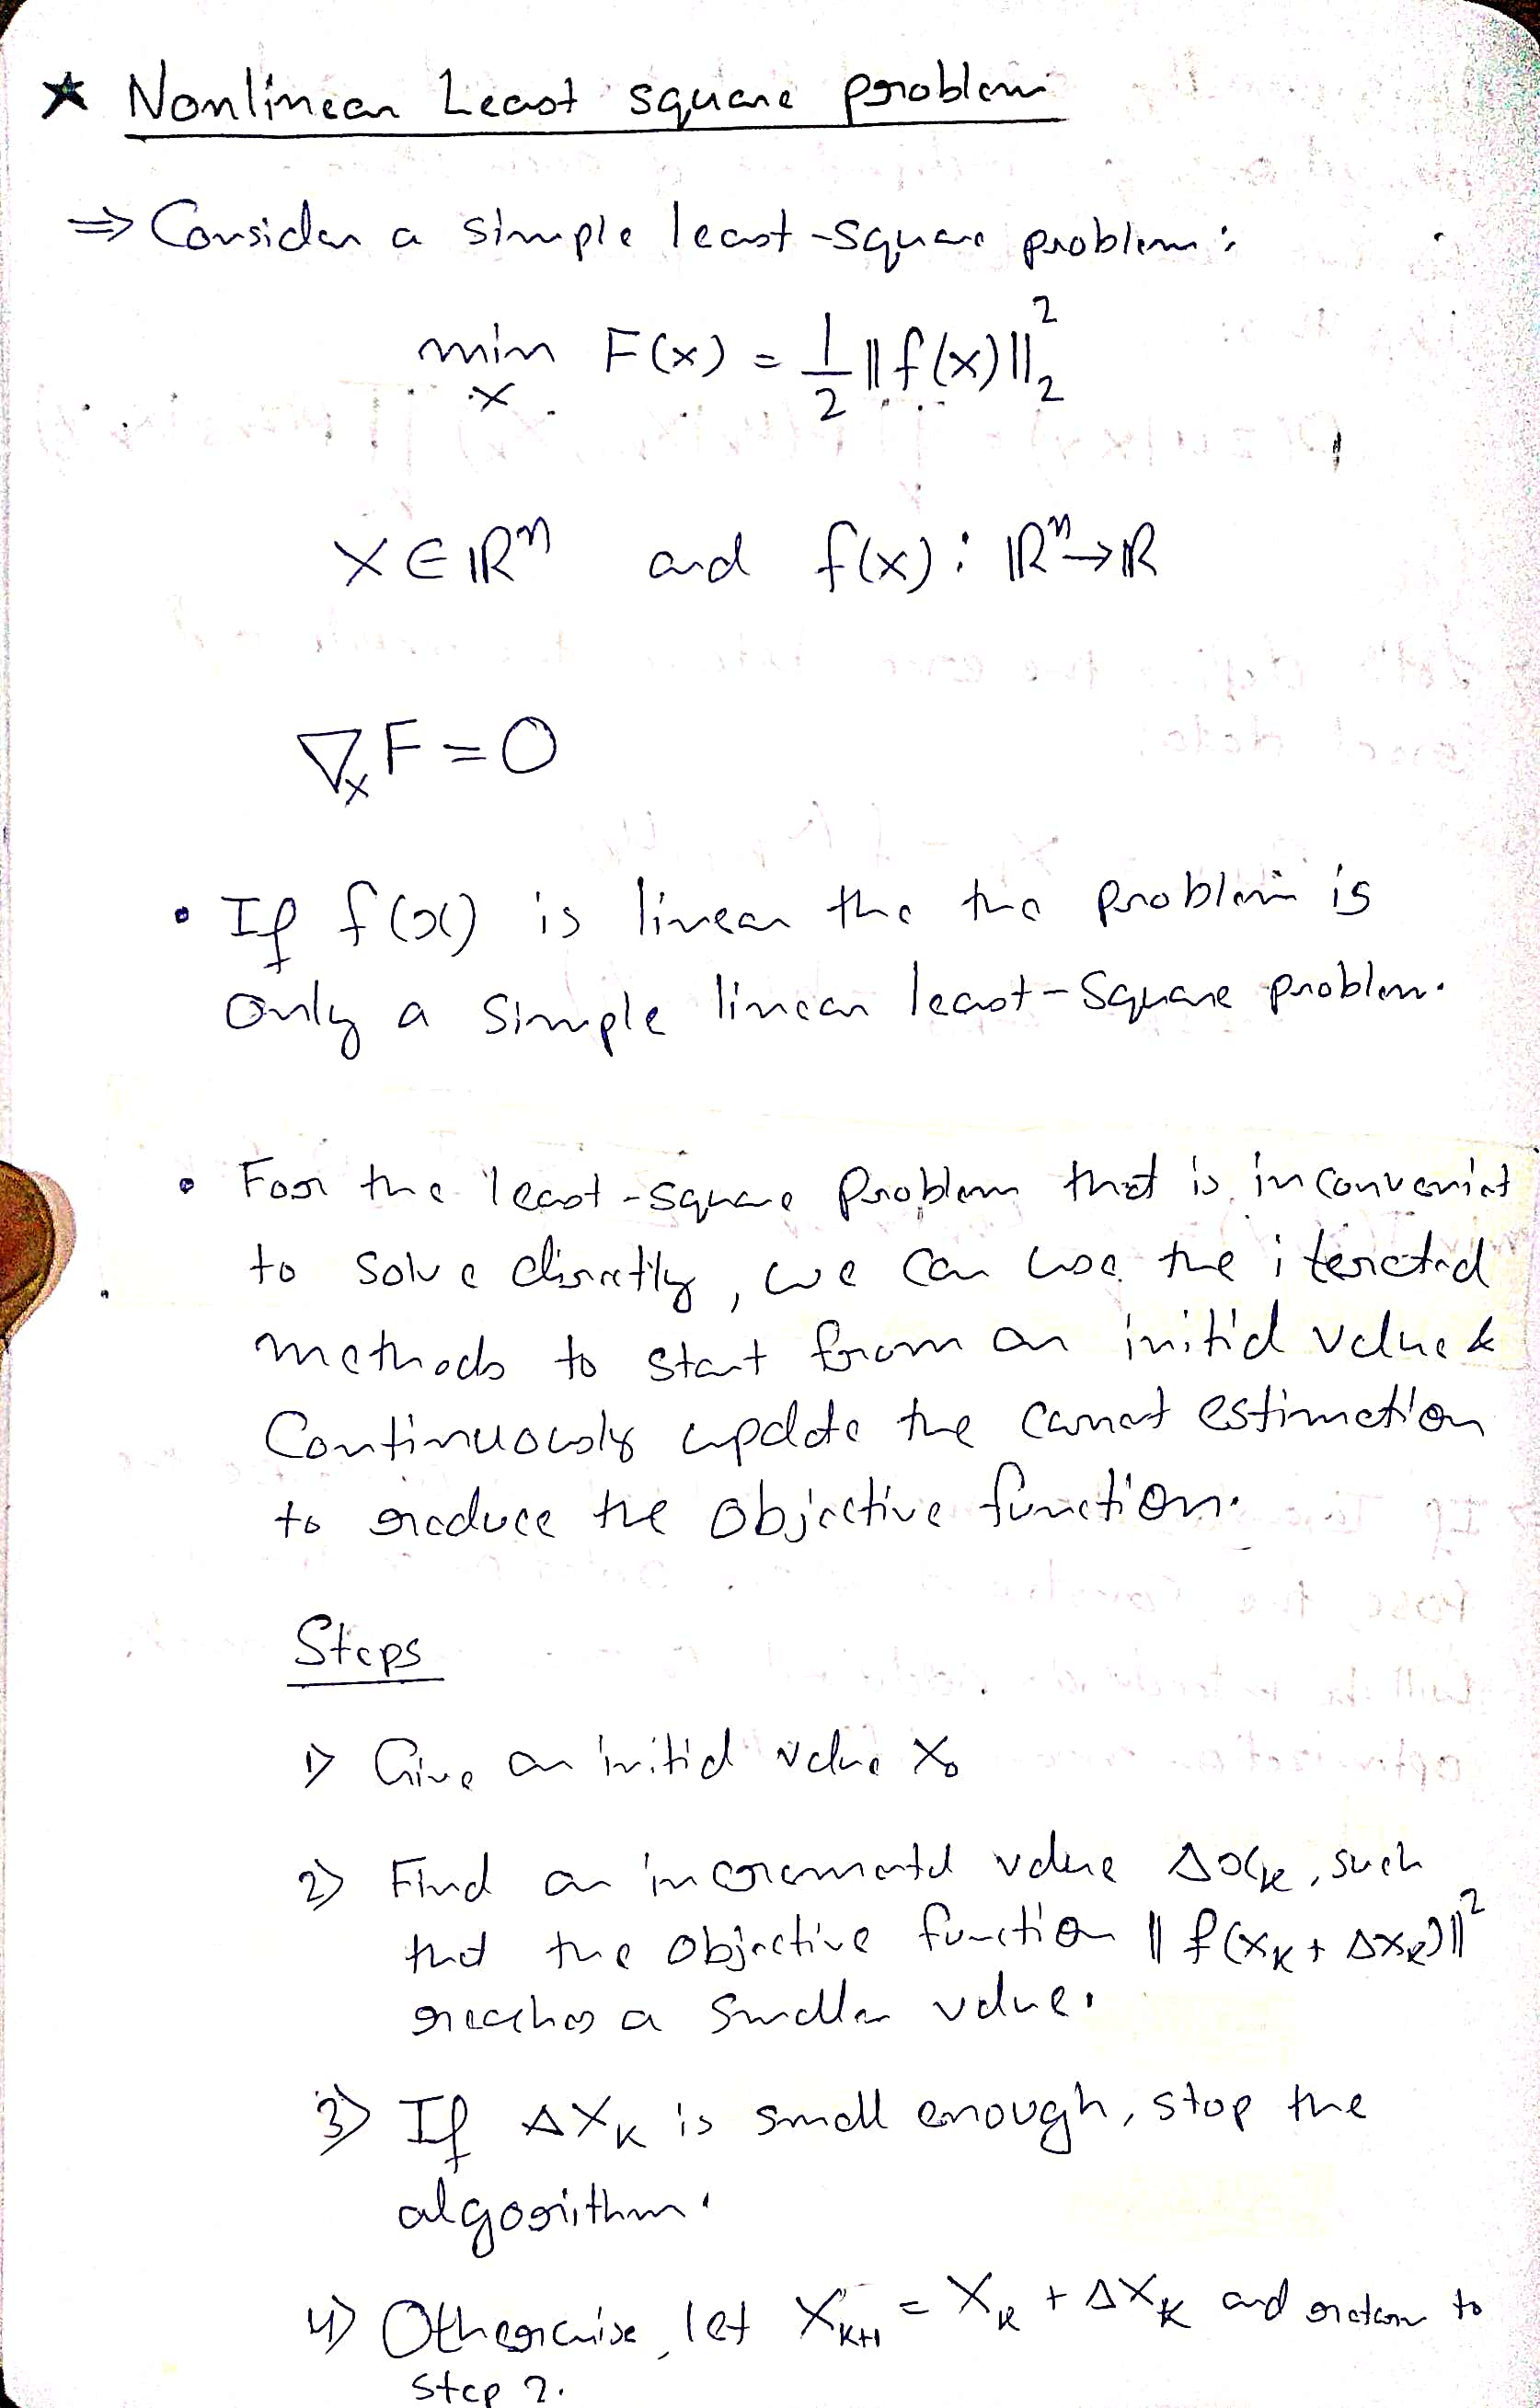 ★ Nonlinear Least square problem
⇒ Consider a simple least-square problem:
min F(x) = 1/2 ||f(x)||₂²
x
x ∈ ℝⁿ and f(x): ℝⁿ→ℝ
∇ₓF = 0
• If f(x) is linear the the problem is
Only a simple linear least-square problem.
• For the least-square problem that is inconvenient
to solve directly, we can use the iterated
methods to start from an initial value &
Continuously update the current estimation
to reduce the objective function.
Steps
1) Give an initial value x₀
2) Find an incremental value Δxₖ, such
that the objective function ||f(xₖ + Δxₖ)||²
reaches a smaller value.
3) If Δxₖ is small enough, stop the
algorithm.
4) Otherwise, let xₖ₊₁ = xₖ + Δxₖ and return to
step 2.